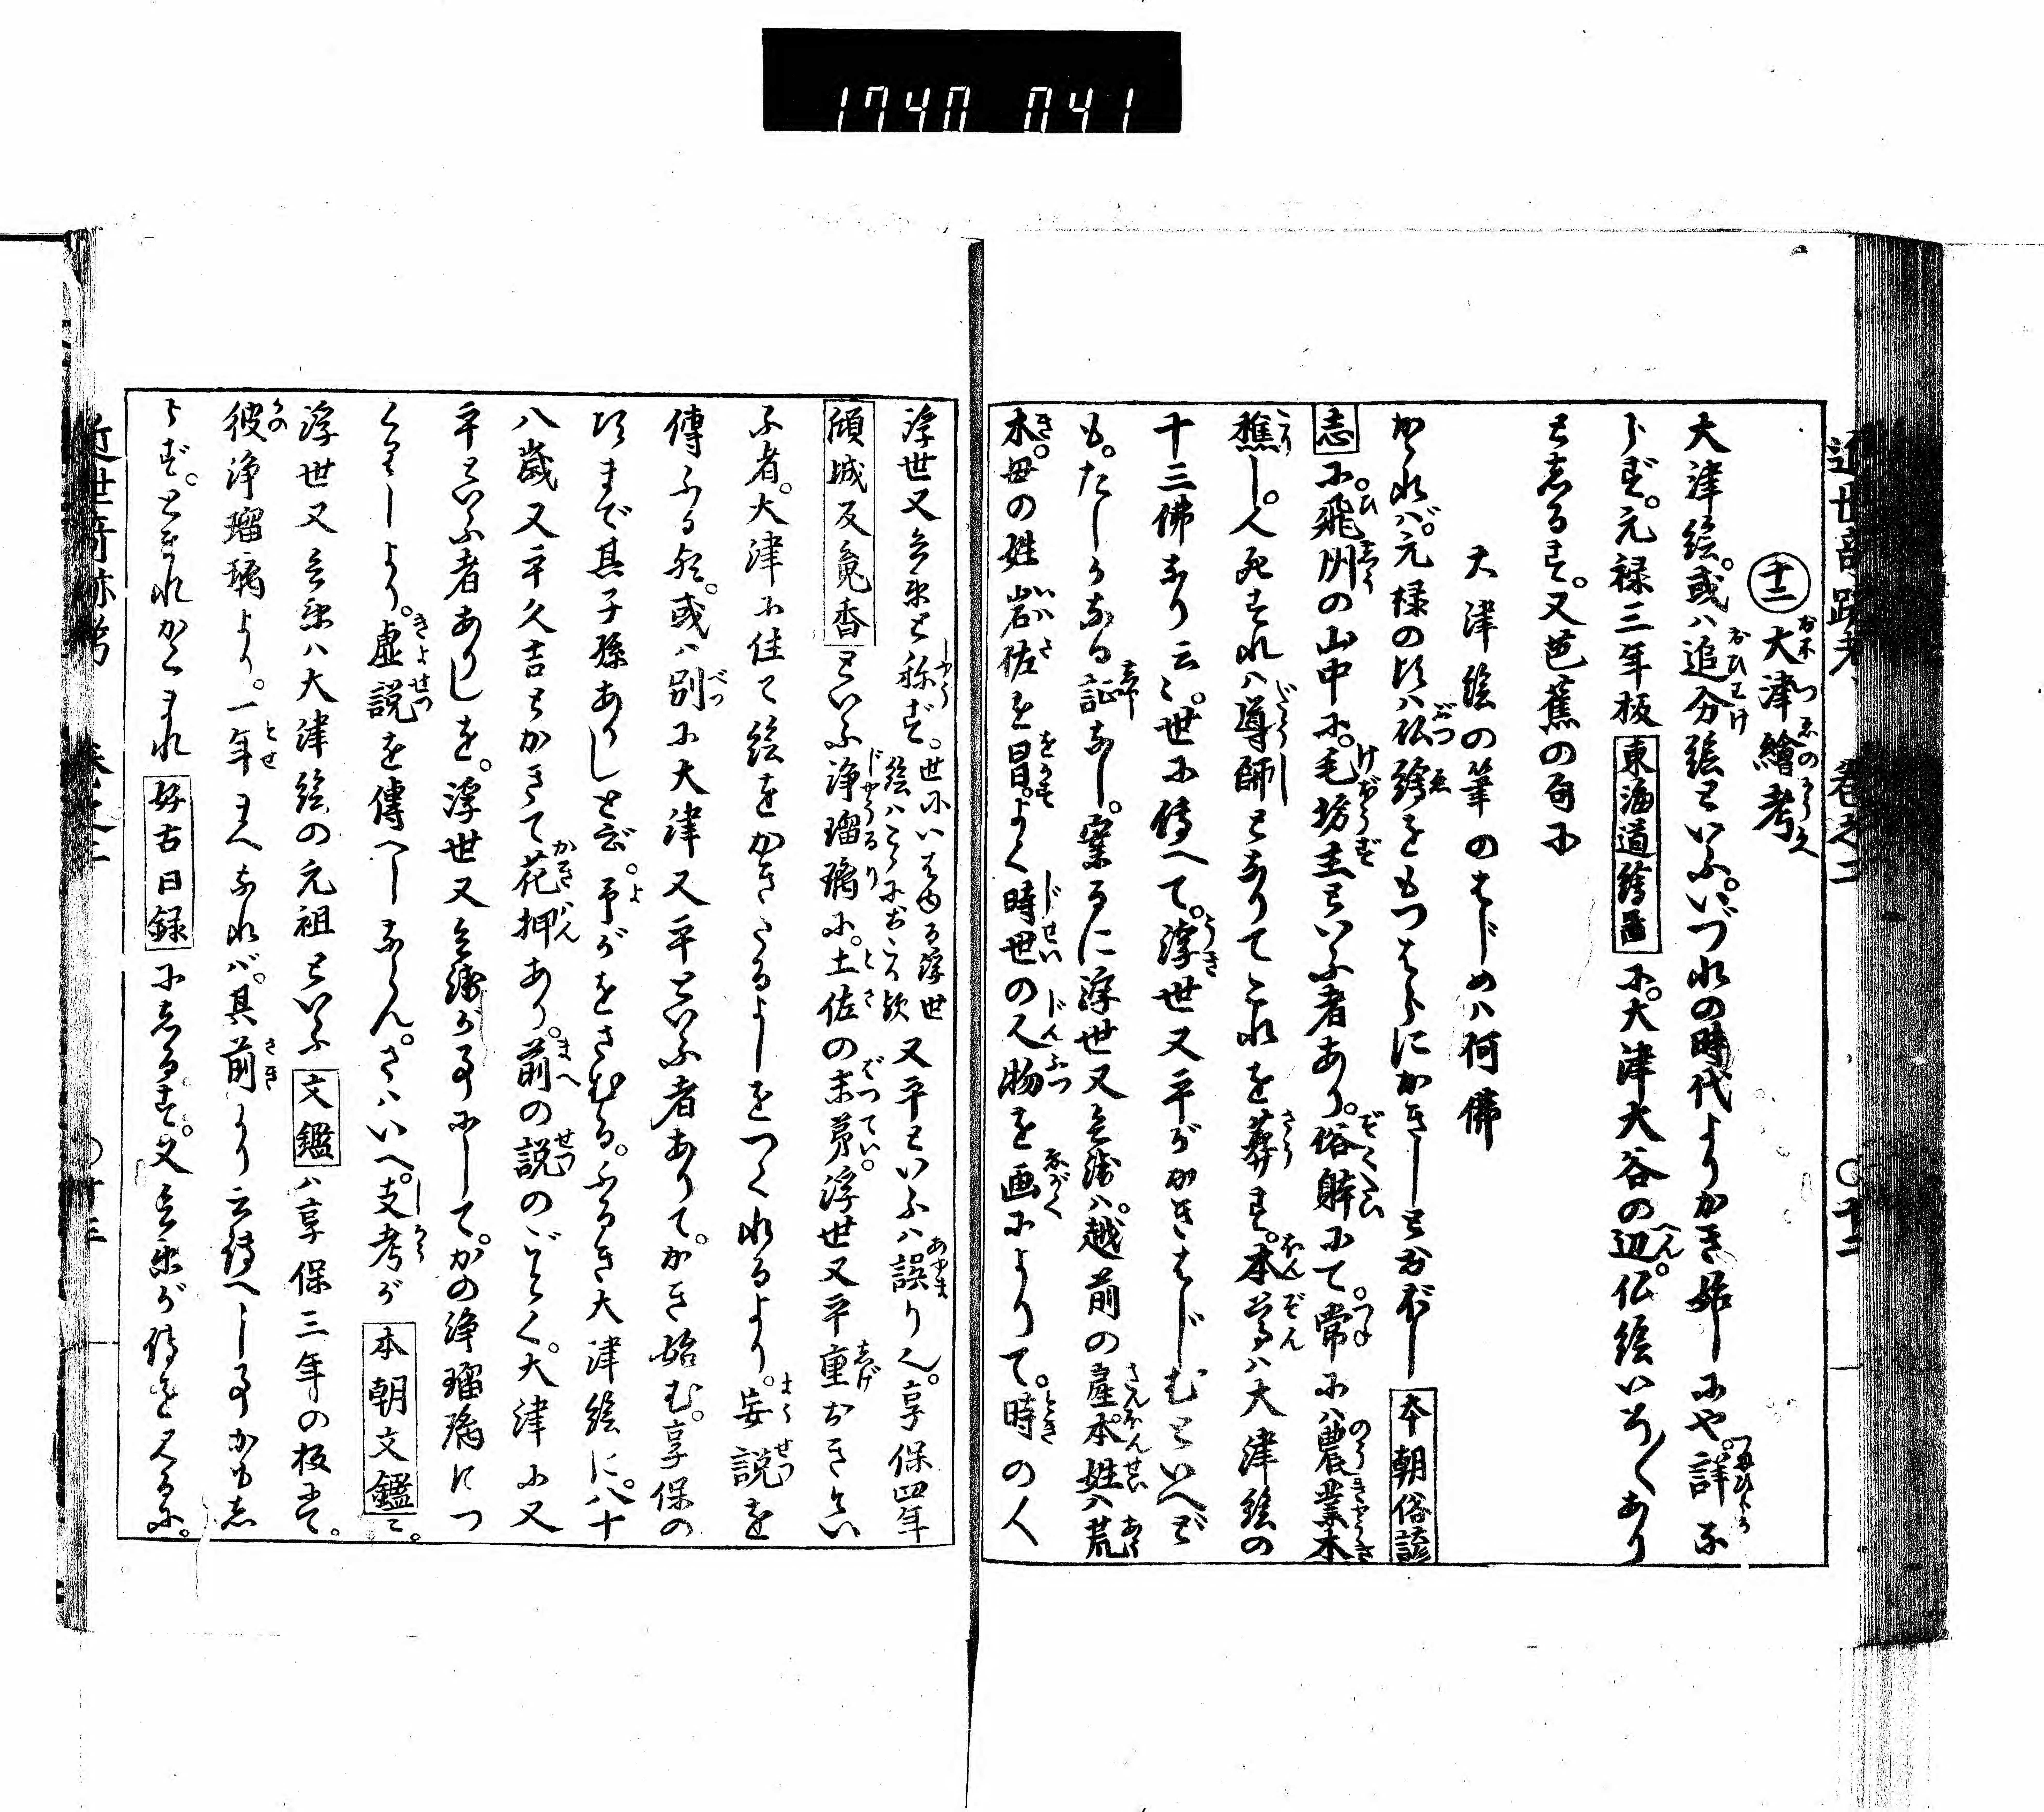 1740 041
近世奇跡考 巻之二 ○十二
十二 大津繪考
大津絵。或ハ追分絵といふ。いづれの時代よりかき始しにや。詳な
らず。元禄三年板 東海道繪圖 に。大津大谷の辺。仏絵いろ〱あり
としるす。又芭蕉の句に
大津絵の筆のはじめハ何佛
かゝれバ。元禄の比ハ仏繪をもつはらにかきしとおぼし 本朝俗諺
志 に。飛州の山中に。毛坊主といふ者あり。俗躰にて。常にハ農業木
樵し。人死すれハ導師となりてこれを葬す。本尊ハ大津絵の
十三佛なり云〻。世に傳へて。浮世又平がかきはじむといへど
も。たしかなる証なし。案るに浮世又兵衛ハ。越前の産。本姓ハ荒
木。母の姓岩佐を冒。よく時世の人物を画によりて。時の人
浮世又兵衛と称ず。世にいはゆる浮世絵ハこゝにおこる歟 又平といふハ誤りん。享保四年
傾城反魂香 といふ浄瑠璃に。土佐の末弟。浮世又平重おきとい
ふ者。大津に住て絵をかきたるよしをつくれるより。妄説を
傳ふる歟。或ハ別に大津又平といふ者ありて。かき始む。享保の
比まで其子孫ありしと歟。予がをさむる。ふるき大津絵に。八十
八歳又平久吉とかきて花押あり。前の説のごとく。大津に又
平といふ者ありしを。浮世又兵衛が事にして。かの浄瑠璃につ
くりしより。虚説を傳へしならん。さハいへ。支考が 本朝文鑑 に。
浮世又兵衛ハ大津絵の元祖といふ 文鑑 ハ享保三年の板にて。
彼浄瑠璃より。一年まへなれバ。其前より云傳へし事かもし
らず。とまれかくまれ 好古日録 にしるす。又兵衛が傳を見るに。
近世奇跡考 巻之二 ○十二